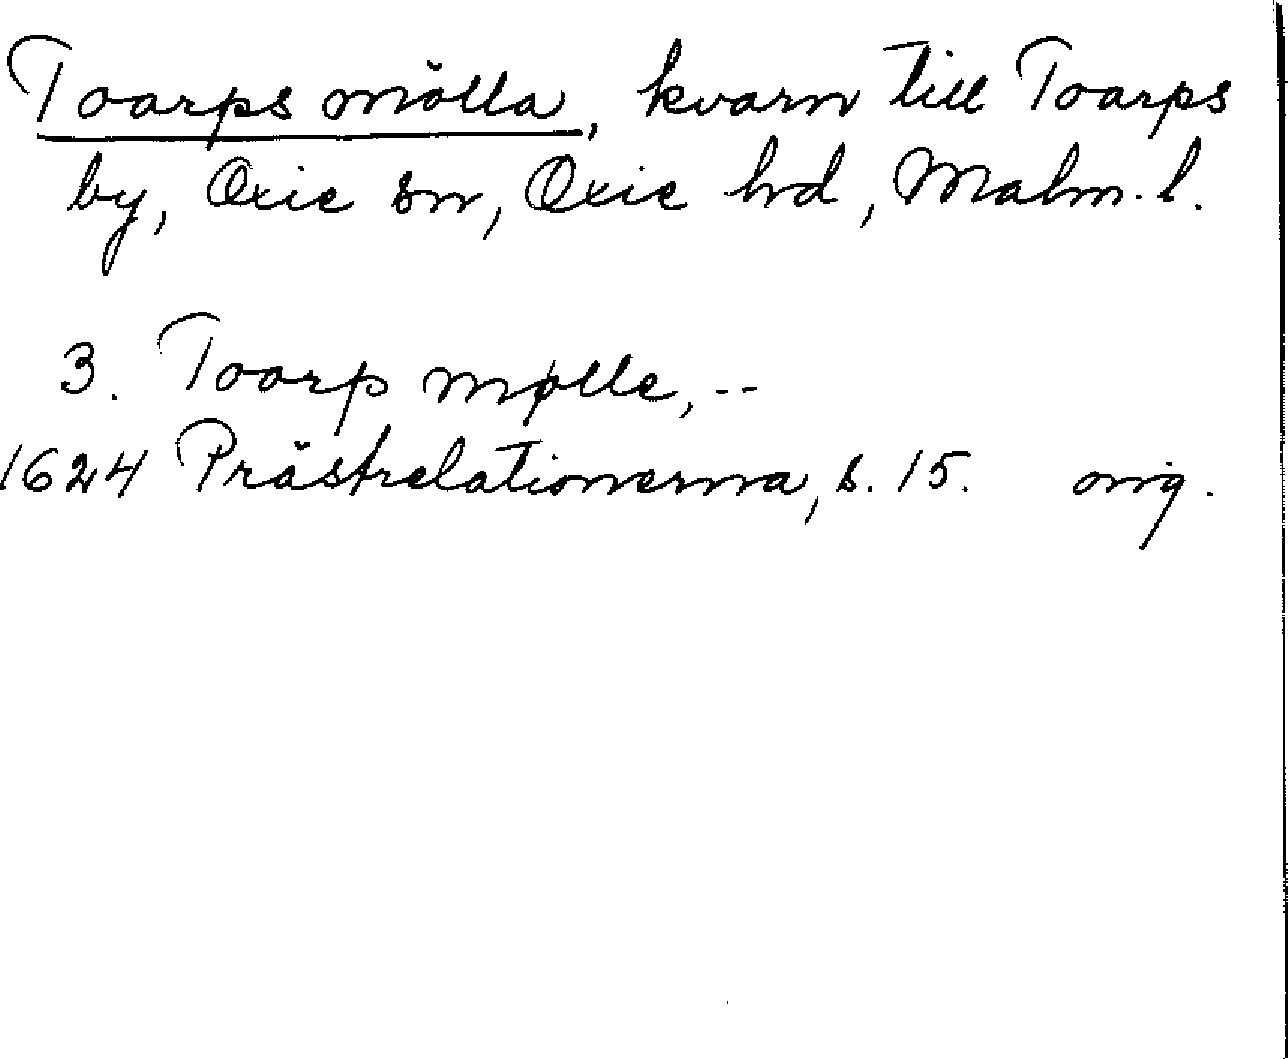 Toarps mölla, kvarn till Toarps
by, Oxie sn, Oxie hd, Malm. l.
3. Toarp mølle, --
1624 Prästrelationerna, s. 15. orig.